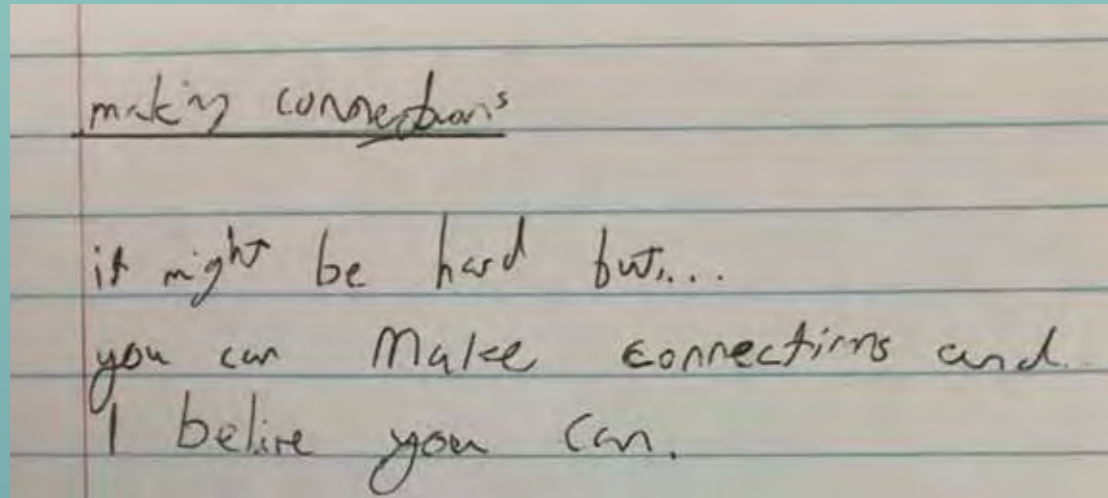 making connections
it might be hard but....
you can make connections and
I belive you can.